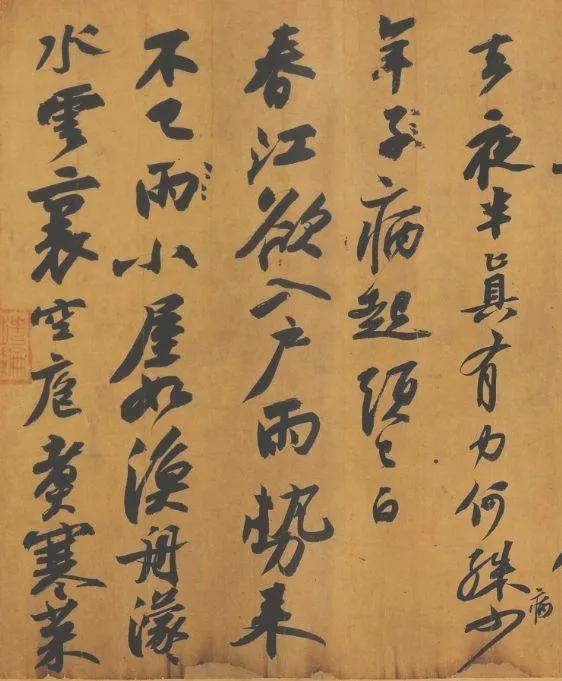 去夜半真有力何殊病少
年子病起頭已白
春江欲入戶雨勢來
不已雨小屋如漁舟濛〻
水雲裏空庖煮寒菜